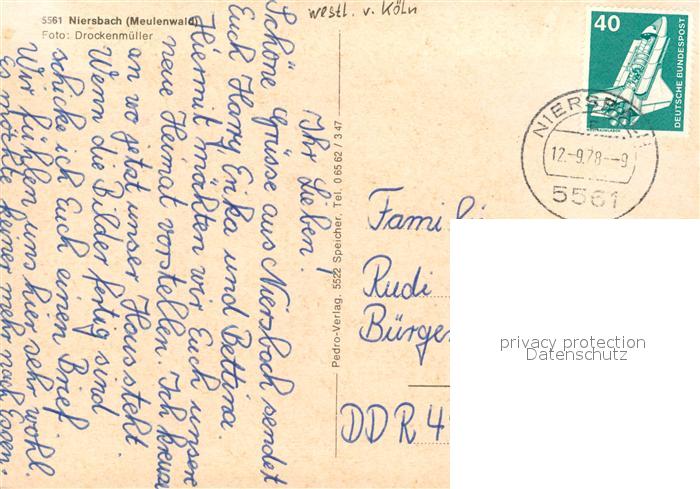 5561 Niersbach (Meulenwald)
Foto: Drockenmüller
westl. v. Köln
40
DEUTSCHE BUNDESPOST
12.-9.78--9
5561
Ihr Lieben!
Schöne Grüsse aus Niersbach sendet
Euch Harry, Erika und Bettina.
Hiermit möchten wir Euch unsere
neue Heimat vorstellen. Ich
an wo jetzt unser Haus steht
Wenn die Bilder fertig sind
schicke ich Euch einen Brief
Wir fühlen uns hier sehr wohl.
Es möchte keiner mehr nach Essen.
Pedro-Verlag, 5522 Speicher, Tel. 0 65 62 / 3 47
Famili
Rudi
Bürger
DDR 4
privacy protection
Datenschutz